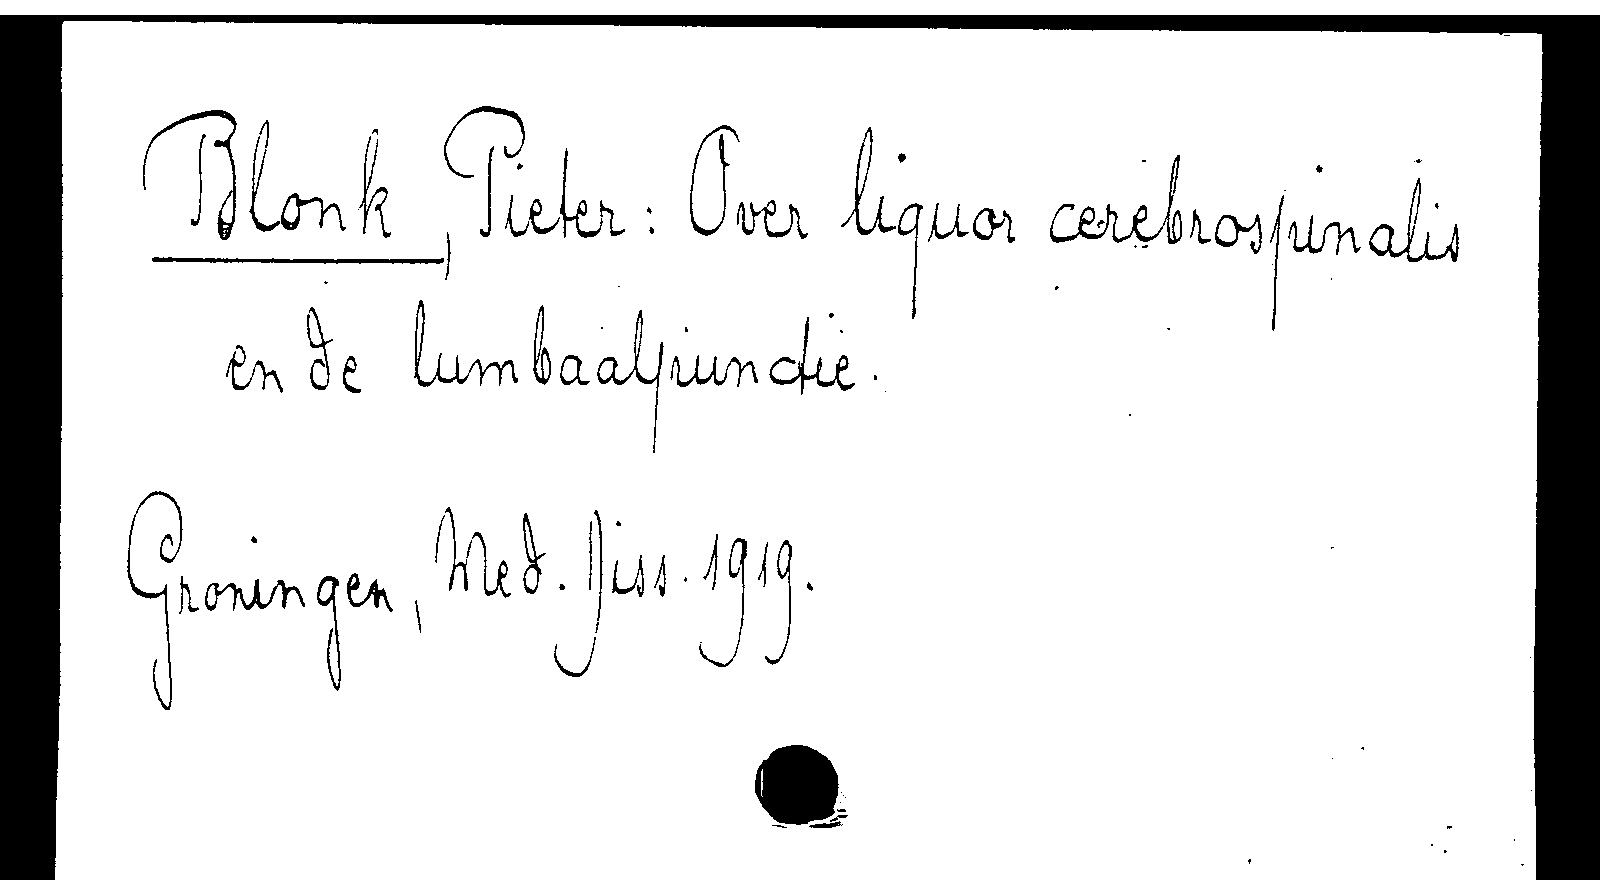 Blonk, Pieter: Over liquor cerebrospinalis
en de lumbaalpunctie.
Groningen, Med. Diss. 1919.